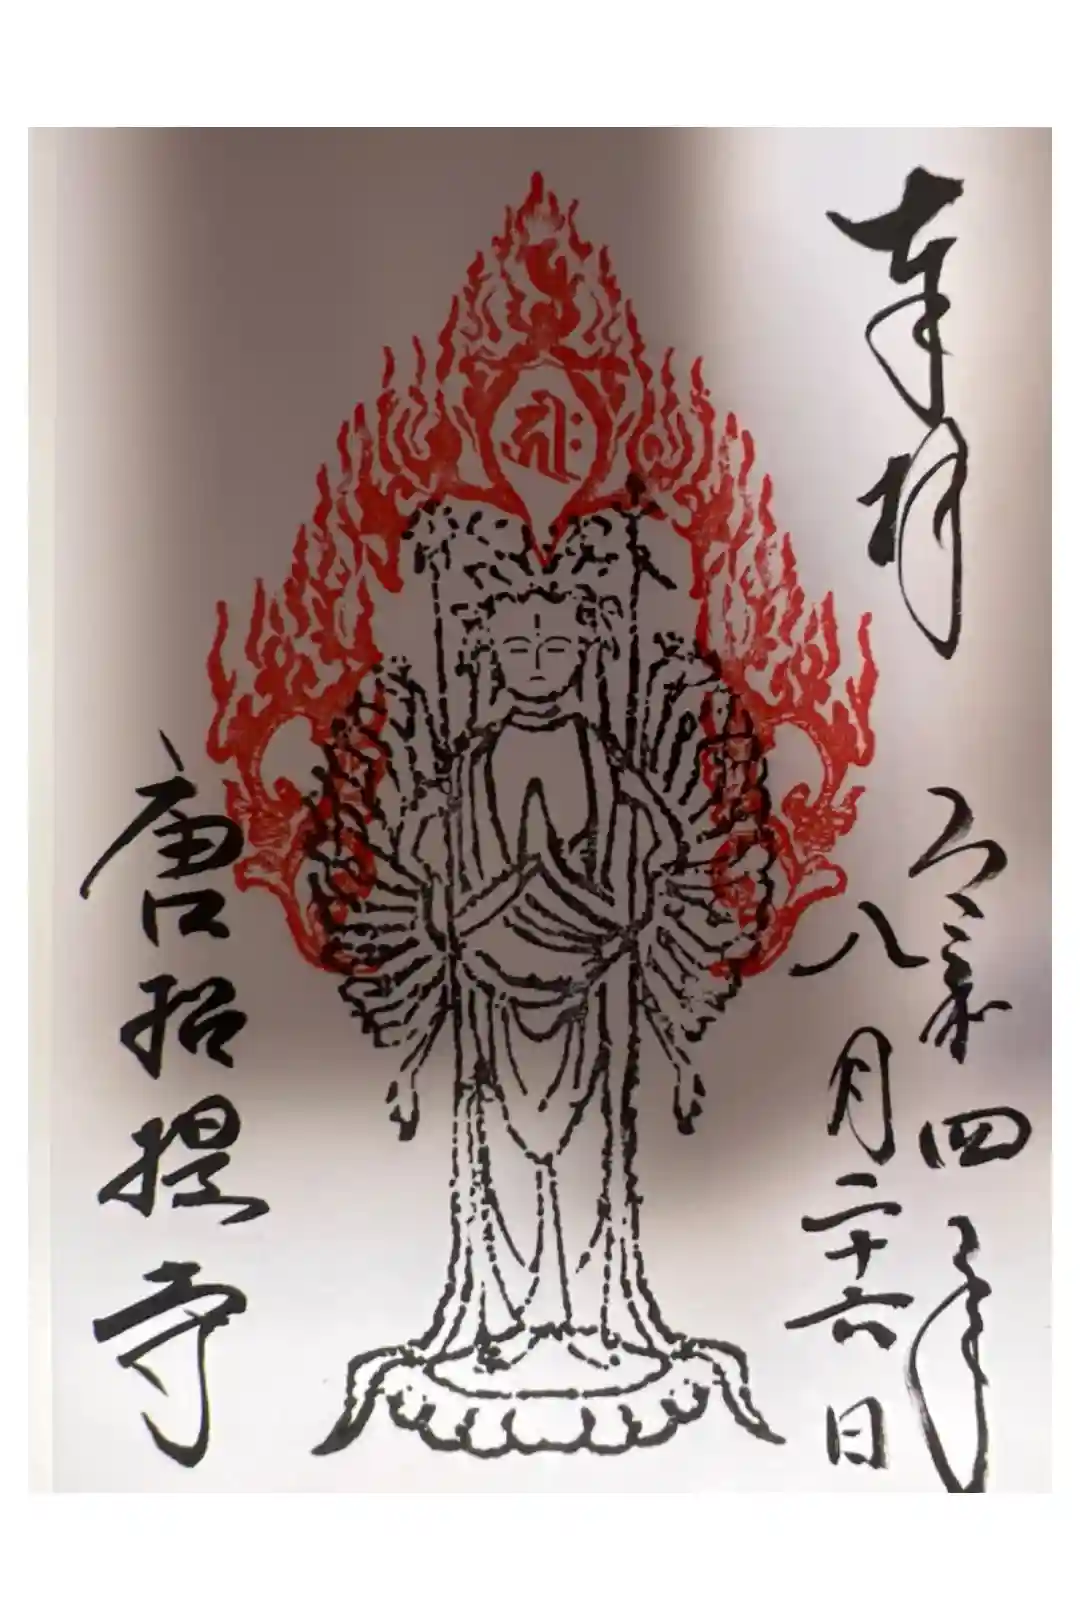 奉拝
令和四年
八月二十六日
𑖮𑖿𑖨𑖱𑖾
唐招提寺